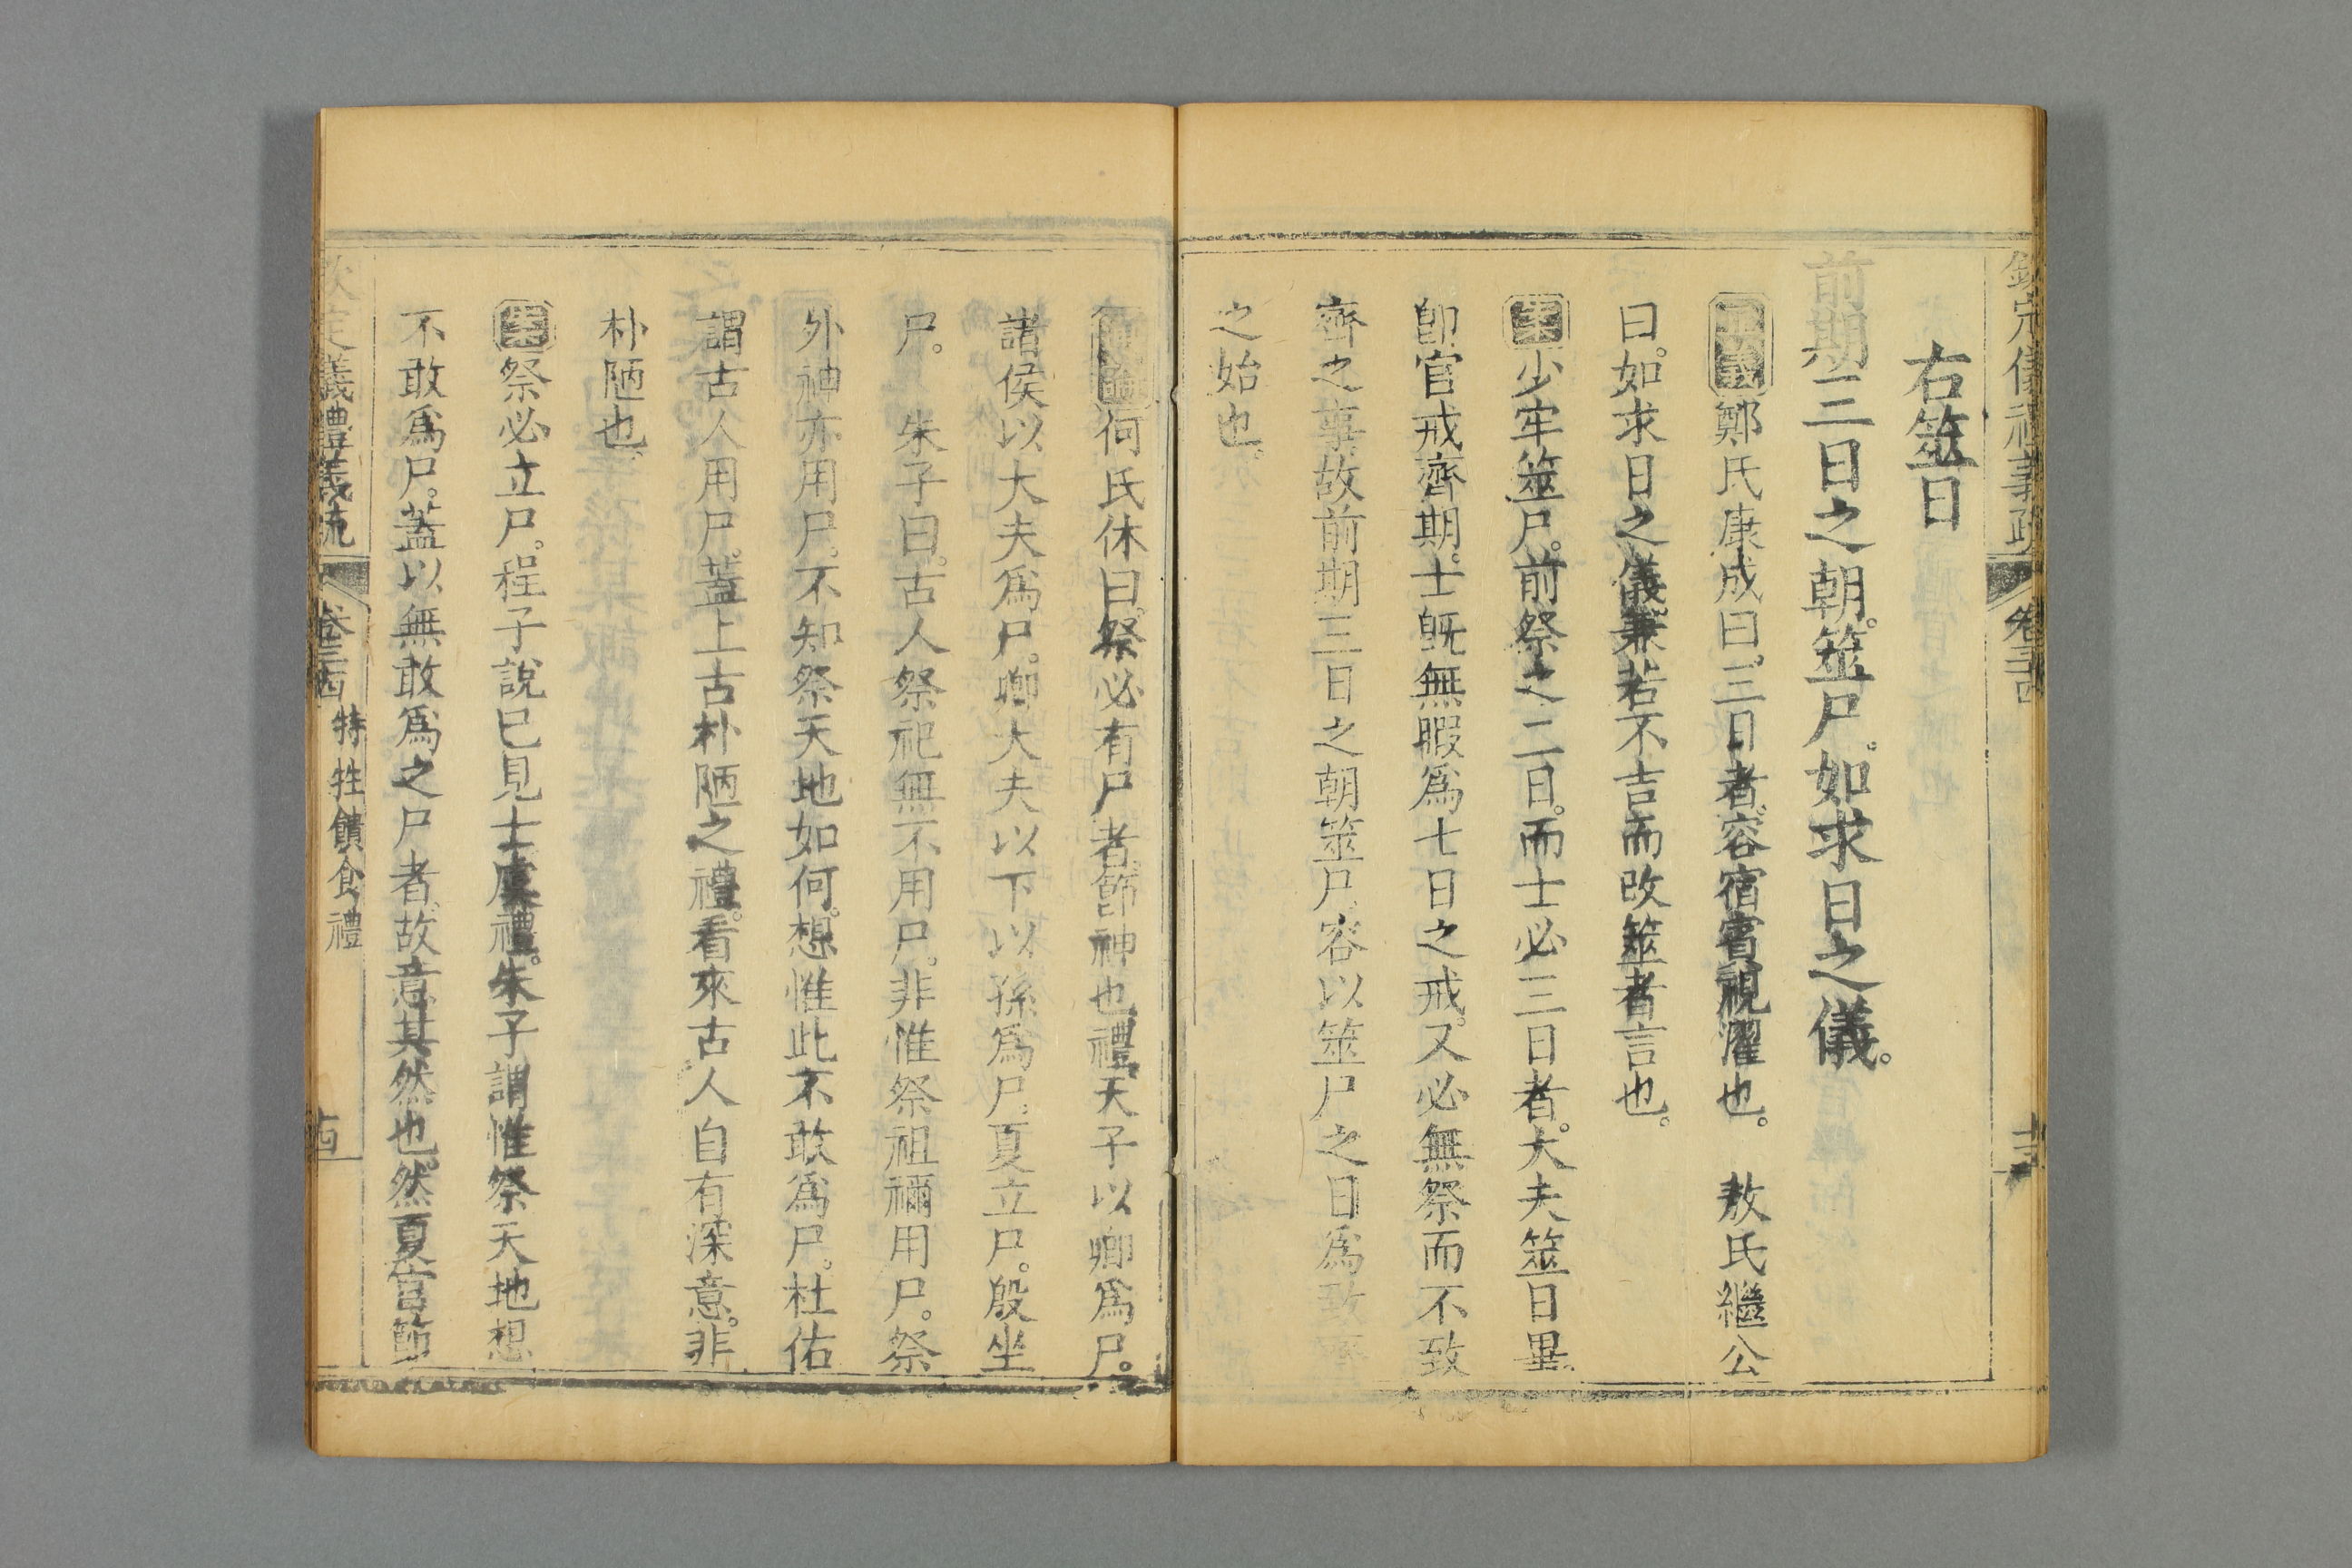 欽定儀禮義疏 卷三十四
右筮日
前期三日之朝。筮尸。如求日之儀。
正義鄭氏康成曰。三日者。容宿賓視濯也。 敖氏繼公
曰。如求日之儀。兼若不吉而改筮者言也。
案少牢筮尸。前祭之二日。而士必三日者。大夫筮日畢。
卽官戒齊期。士旣無暇爲七日之戒。又必無祭而不致
齊之事。故前期三日之朝筮尸。容以筮尸之日爲致齊
之始也。
何氏休曰。祭必有尸者。節神也。禮。天子以卿爲尸。
諸侯以大夫爲尸。卿大夫以下以孫爲尸。夏立尸。殷坐
尸。 朱子曰。古人祭祀無不用尸。非惟祭祖禰用尸。祭
外神亦用尸。不知祭天地如何。想惟此不敢爲尸。杜佑
謂古人用尸。蓋上古朴陋之禮。看來古人自有深意。非
朴陋也。
案祭必立尸。程子說已見士虞禮。朱子謂惟祭天地想
不敢爲尸。蓋以無敢爲之尸者。故意其然也。然夏官節
欽定儀禮義疏 卷三十四 特牲饋食禮 十四